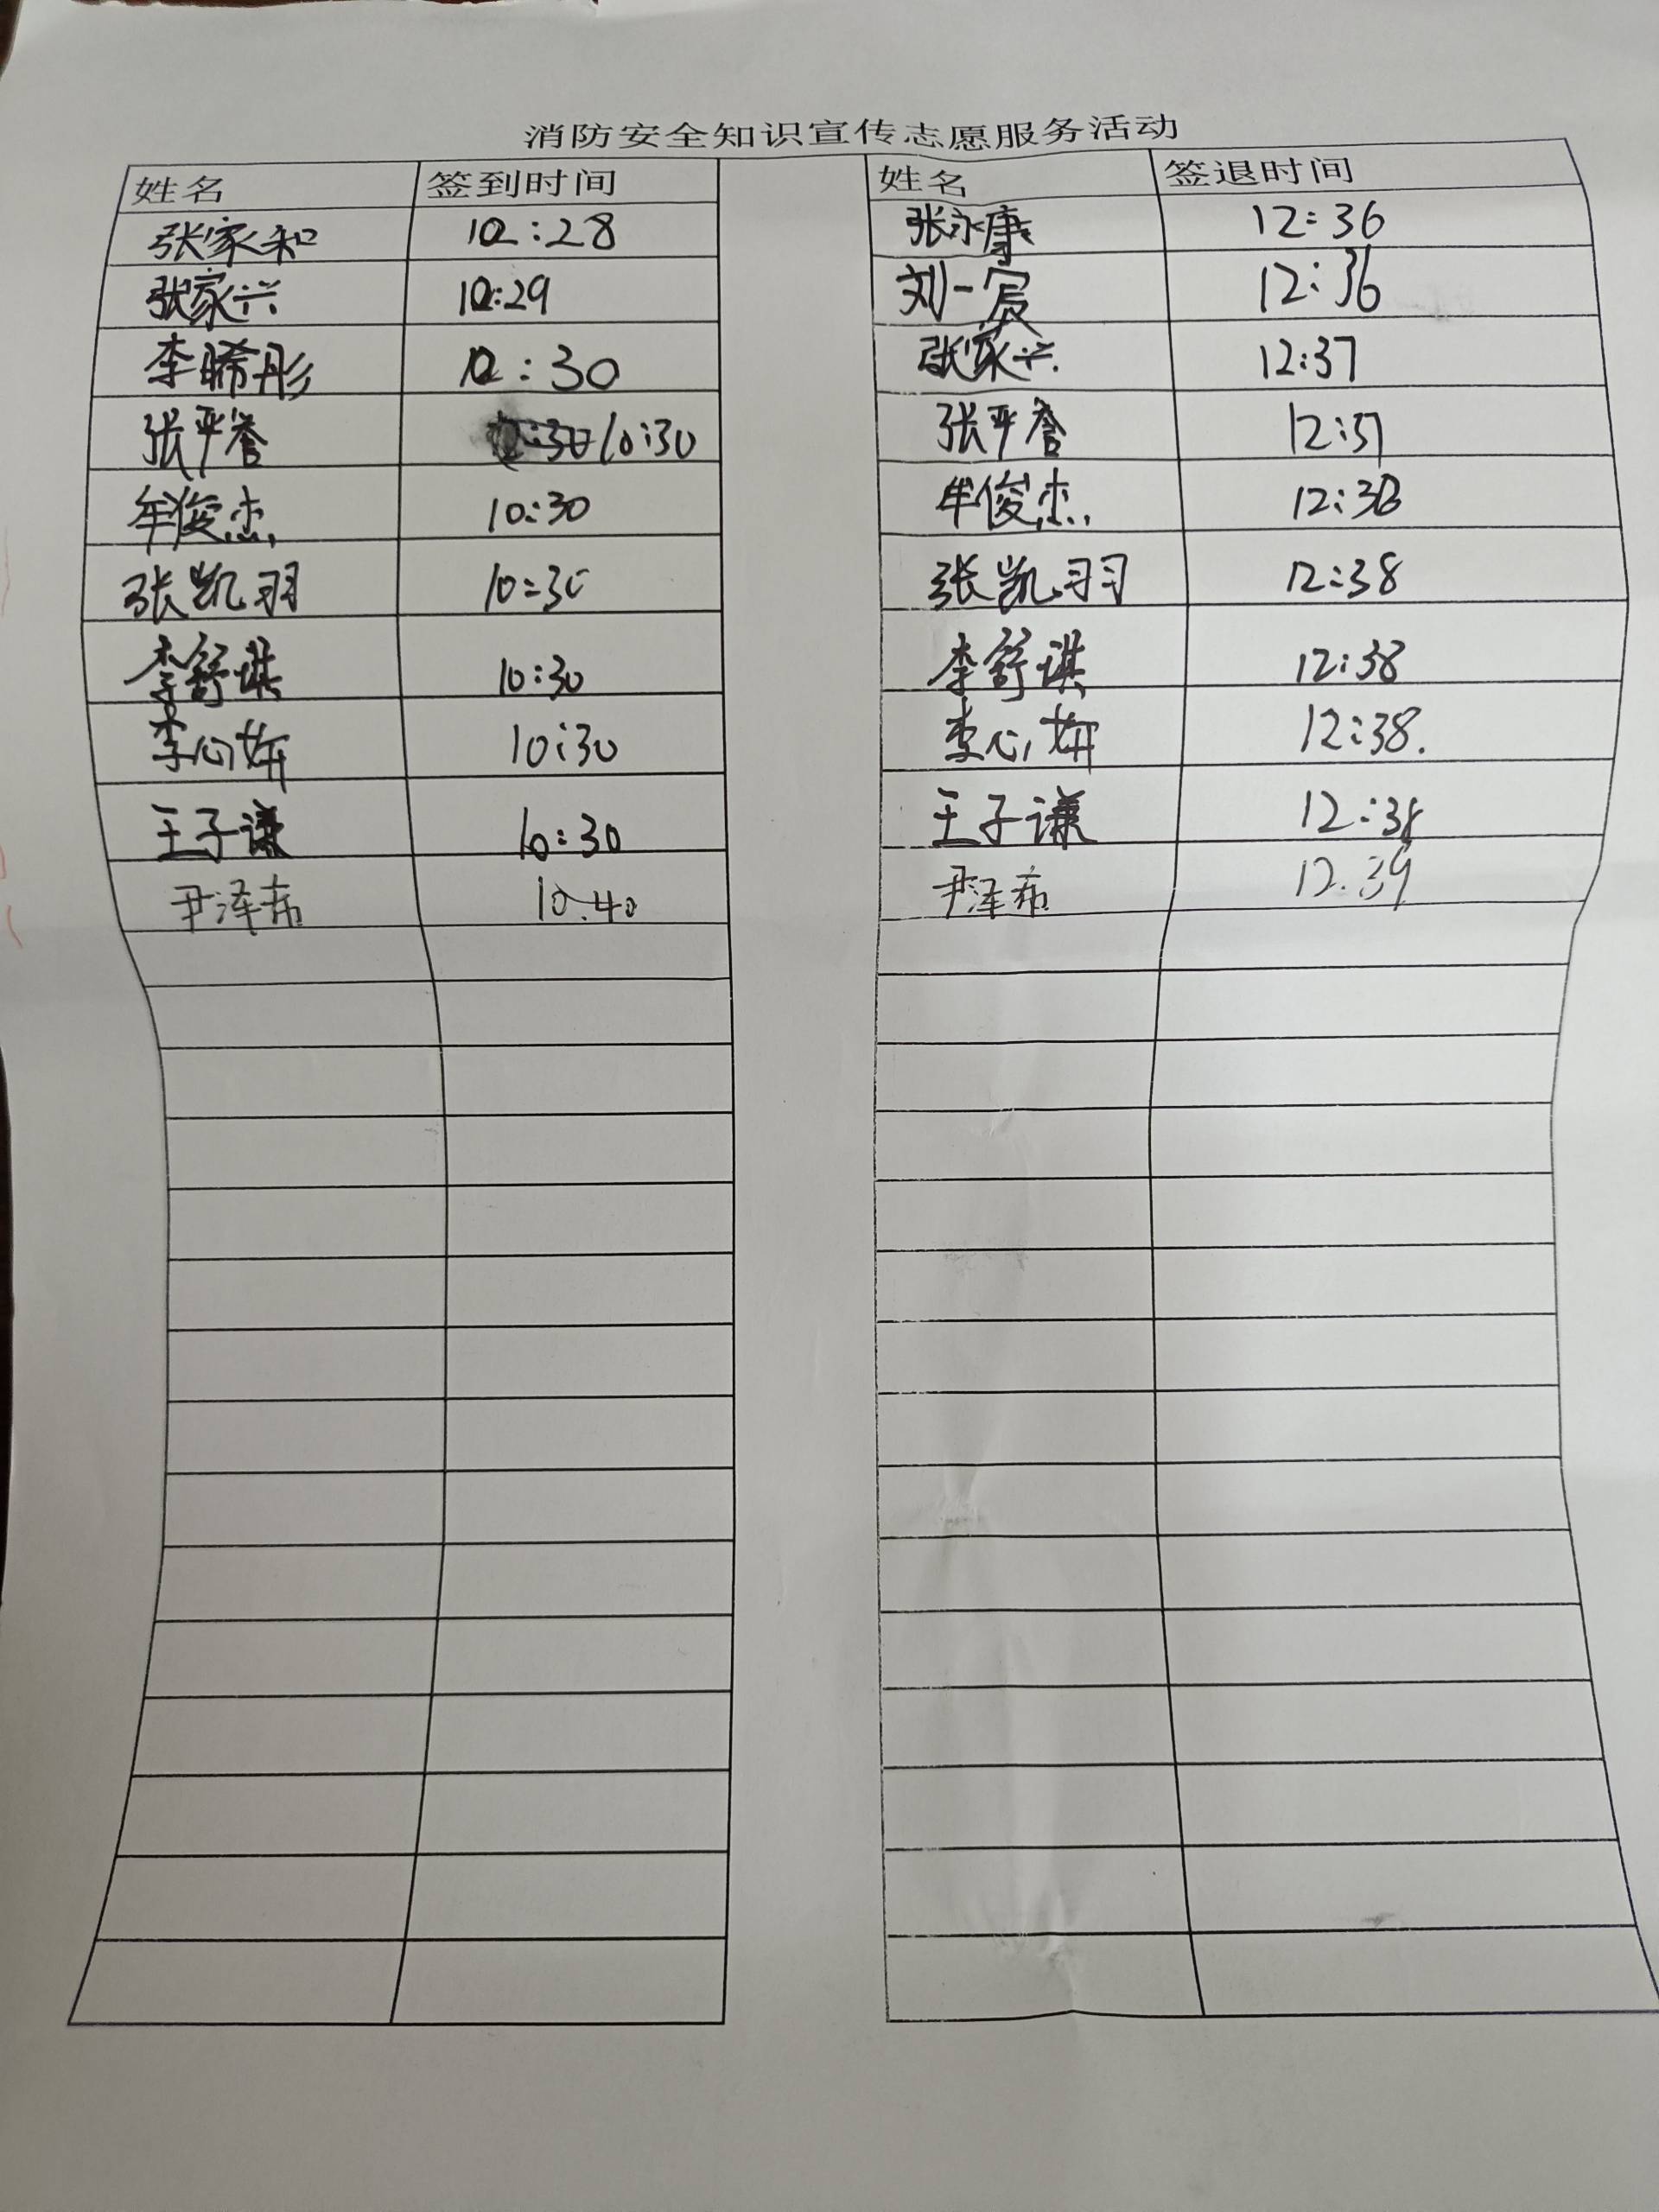 消防安全知识宣传志愿服务活动
姓名 签到时间 姓名 签退时间
张家和 10:28 张永康 12:36
张家兴 10:29 刘一宸 12:36
李晞彤 10:30 张家兴 12:37
张平誉 10:30 张平誉 12:37
牟俊杰 10:30 牟俊杰 12:38
张凯羽 10:30 张凯羽 12:38
李舒祺 10:30 李舒祺 12:38
李心妍 10:30 李心妍 12:38.
王子谦 10:30 王子谦 12:38
尹泽希 10.40 尹泽希 12.39